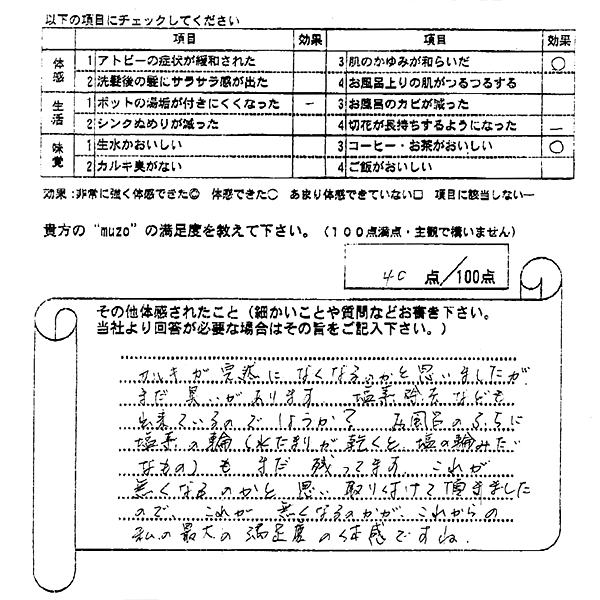 以下の項目にチェックしてください
項目 効果 項目 効果
体感 1 アトピーの症状が緩和された 3 肌のかゆみが和らいだ ○
2 洗髪後の髪にサラサラ感が出た 4 お風呂上りの肌がつるつるする
生活 1 ポットの湯垢が付きにくくなった － 3 お風呂のカビが減った
2 シンクぬめりが減った 4 切花が長持ちするようになった －
味覚 1 生水がおいしい 3 コーヒー・お茶がおいしい ○
2 カルキ臭がない 4 ご飯がおいしい
効果：非常に強く体感できた◎ 体感できた○ あまり体感できていない□ 項目に該当しない－
貴方の“muzo”の満足度を教えて下さい。（１００点満点・主観で構いません）
40 点／100点
その他体感されたこと（細かいことや質問などお書き下さい。
当社より回答が必要な場合はその旨をご記入下さい。）
カルキが完然になくなるのかと思いましたが
まだ臭いがあります。塩素除去なども
出来ているのでしょうか？ お風呂のふちに
塩素の輪（水たまりが乾くと、塩の輪みたい
なもの）も まだ 残ってます。これが
無くなるのかと 思い 取り付けて頂きました
ので、これが 無くなるのかが、これからの
私の最大の満足度の体感ですね。